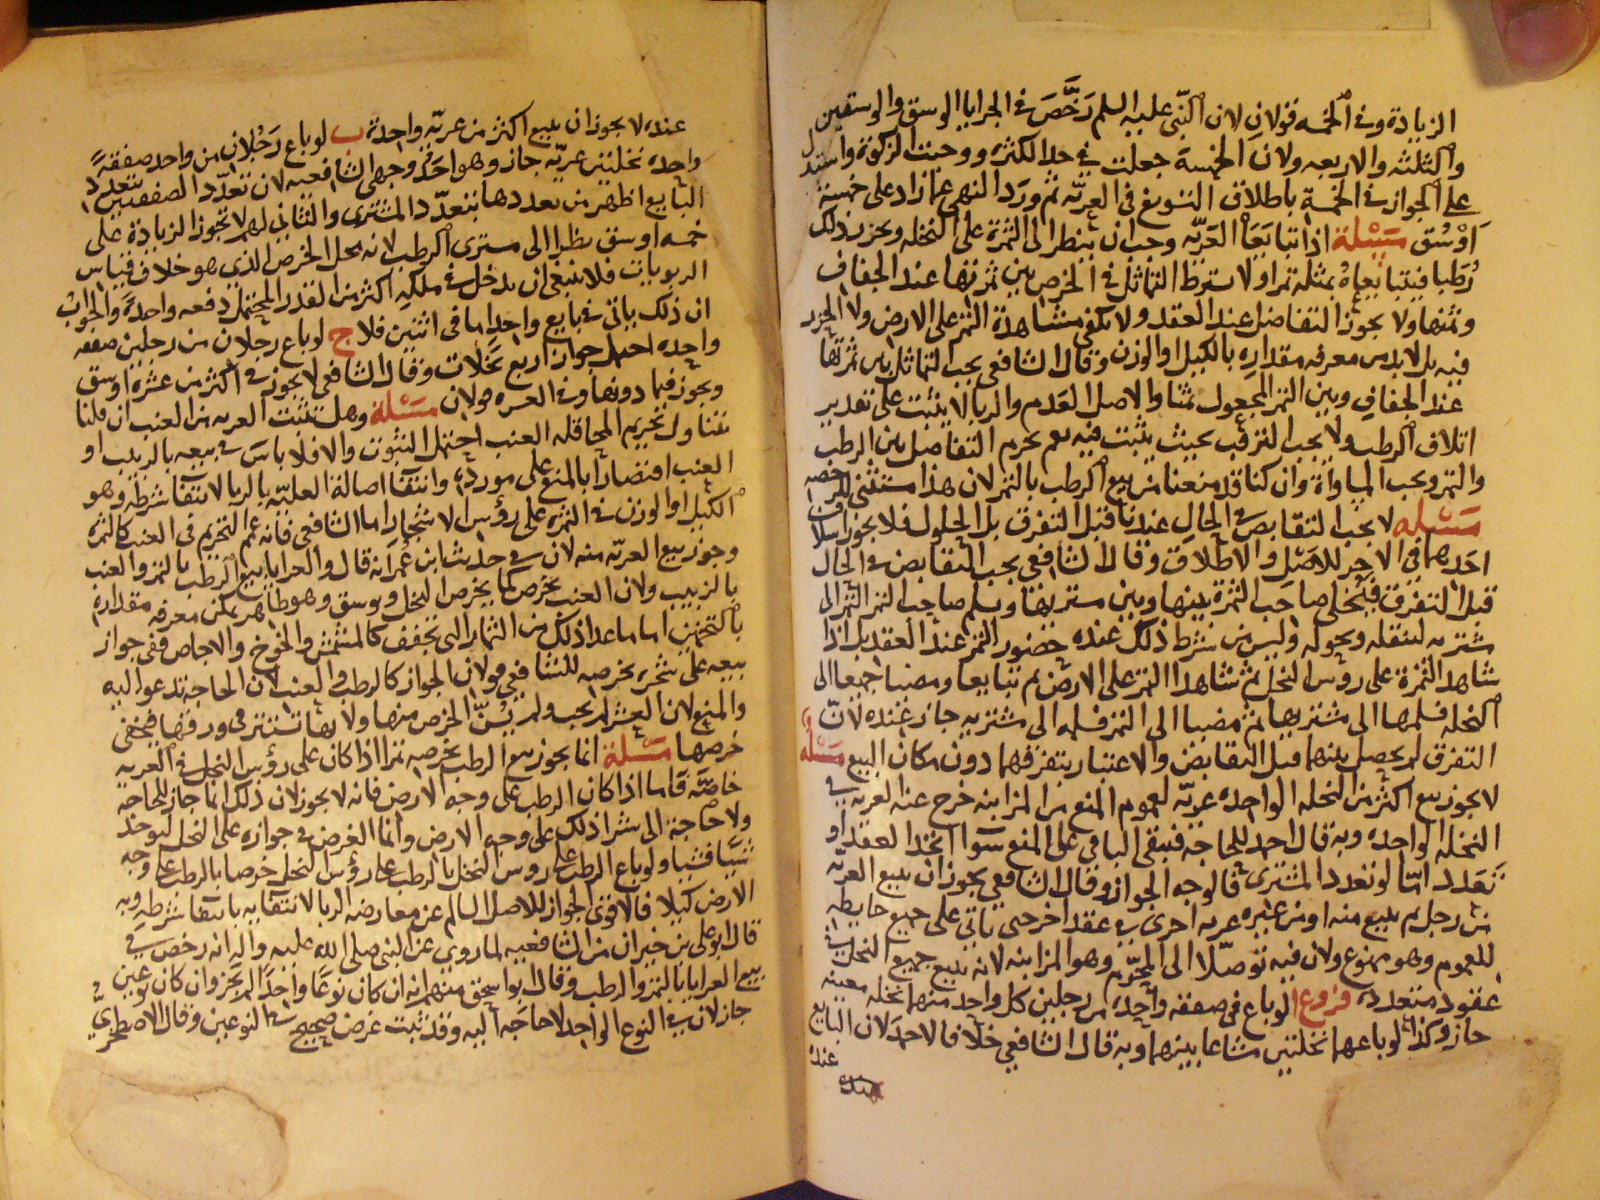 الزيادة وفي الخمسة قولان لان النبي عليه السلم رَخَّصَ في العرايا الوسق والوسقين
والثلثه والاربعه ولان الخمسة جعلت في حد الكثره ووجبت الزكوة واستدل
على الجواز في الخمسة باطلاق التسويغ في العريّه ثم ورد النهى عما زاد على خمسة
اَوْسُق مسئلة اذا تبايَعَا العَريّه وجب ان ينظر الى الثمرة على النخله ويحزر ذلك
رُطبا فيتبايعاهُ بمثله تمرا ولا يشترط التماثل في الخرص بين ثمرتها عند الجفاف
وثمنها ولا يجوز التفاضل عند العقد ولا يكفى مشاهدة التمر على الارض ولا الحزر
فيه بل لابد من معرفه مقداره بالكيل او الوزن وقال الشافعي يجب التماثل بين ثمرتها
عند الجفاف وبين التمر المجعول ثمنا والاصل العَدم والربا لا يثبت على تقدير
اتلاف الرطب ولا يجب الترقّب بحيث يثبت فيه نعم يحرم التفاضل بين الرطب
والتمر ويجب المساواة وان كنا قد منعنا من بيع الرطب بالتمر لان هذا مستثنى للرخصه
مسئله لا يجب التقابض في الحالِ عندنا قبل التفرق بل الحلول فلا يجوز اسلاف
احدهما في الاخر للاَصْلِ والاطلاق وقال الشافعي يجب التقابض في الحال
قبل التفرق فيُخلى صاحب الثمرة بينها وبين مشتريها ويسلم صاحب التمر التمر الى
مشتريه لينقله ويحوله وليس من شرط ذلك عنده حضور التمر عند العقد بل اذا
شاهد الثمرة على رؤس النخل ثم شاهدا التمر على الارض ثم تبايعا ومضيا جميعا الى
النخله فسلمها الى مشتريها ثم مضيا الى التمر فسلمه الى مشتريه جاز عنده لانّ
التفرق لم يحصل بينهما قبل التقابض والاعتبار بتفرقهما دون مكان البيع مسئله
لا يجوز بيع اكثر من النخله الواحده عريّه لعموم المنع من المزابنه خرج عنه العريه في
النخله الواحده وبه قال احمد للحاجه فيبقى الباقي على المنع سوآا اتحد العقد او
تعَدد امّا لو تعدد المشترى فالوجه الجواز وقال الشافعي يجوز ان يبيع العريّه
من رجل ثم يبيع منه او من غيره عريه اخرى في عقد اخر حتى ياتي على جميع حايطه
للعموم وهو ممنوع ولان فيه توصّلا الى المحرّم وهو المزابنه لانه يبيع جميع النخل في
عقود متعدده فروع ا لو باع في صفقه واحده من رجلين كل واحد منهما نخله معينه
جاز وكذا لو باعهما نخلتين مشاعا بينهما وبه قال الشافعي خلافا لاحمد لان البايع
عنده
عنده لا يجوز ان يبيع اكثر من عريّه واحدة ب لو باع رَجُلان من واحد صفقةً
واحده نخلتين عريّه جاز وهو احد وجهى الشافعيه لان تعدّد الصفقه بتعدد
البايع اظهر من تعددها بتعدّد المشترى والثانى لهم لا تجوز الزيادة على
خمسه اوسق نظرا الى مشترى الرطب لانه محل الخرص الذي هو خلاف قياس
الربويات فلا ينبغي ان يدخل في ملكه اكثر من القدر المحتمل دفعه واحدةً والجواب
ان ذلك ياتي في بايع واحد اما في اثنين فلا ج لو باع رجلان من رجلين صفقه
واحده احتمل جواز اربع نخلات وقال الشافعي لا يجوز في اكثر من عشره اوسق
ويجوز فيما دونها وفي العشره قولان مسئلة وهل تثبت العريه في العنب ان قلنا
بتناول تحريم المحاقله العنب احتمل الثبوت والا فلا باسَ في بيعه بالزبيب او
العنب اقتصارا بالمنع على مورده وانتفآ اصالة العليّه بالربا لانتفآ شرطه وهو
الكيل او الوزن في الثمره على رؤس الاشجار اما الشافعي فانه عمم التحريم في العنب كالتمره
وجوز بيع العريّه منه لان في حديث ابن عُمر انه قال والعرايا بيع الرطب بالتمر والعنب
بالزبيب ولان العنب يخرص كما يخرص النخل ويوسق وهو ظاهر يمكن معرفه مقداره
بالتخمين اما ما عدا ذلك من الثمار التى تجفف كالمشمش والخوخ والاجاص ففي جواز
بيعه على شجره بخرصه للشافعي قولان الجواز كالرطب والعنب لان الحاجة تدعوا اليه
والمنع لان العشر لم يجب ولم يُسَنّ الخرص منها ولانها تستتر في ورقها فيخفى
خرصها مسئلة انما يجوز بيع الرطب بخرصه تمرا اذا كان على رؤس النخل في العريه
خاصّة فاما اذا كان الرطب على وجه الارض فانه لا يجوز لان ذلك انما جاز للحاجه
ولا حاجة الى شرا ذلك على وجه الارض وانما الغرض في جوازه على النخل ليوخذ
شيَا فشيا ولو باع الرطب على روس النخل بالرطب على رؤس النخل خرصا بالرطب على وجه
الارض كيلا فالاقوى الجواز للاصل السالم عن معارضه الربا لانتفآيه بانتفآ شرطه وبه
قال ابو على بن خيران من الشافعيه لما روى عن النبي صلى الله عليه واله انه رخص في
بيع العرايا بالتمر والرطب وقال ابو اسحق منهم انه ان كان نوعًا واحدًا لم يجز وان كان نوعين
جاز لان في النوع الواحد لا حاجَه اليه وقد ثبت غرض صحيح في النوعين وقال الاصطخريّ